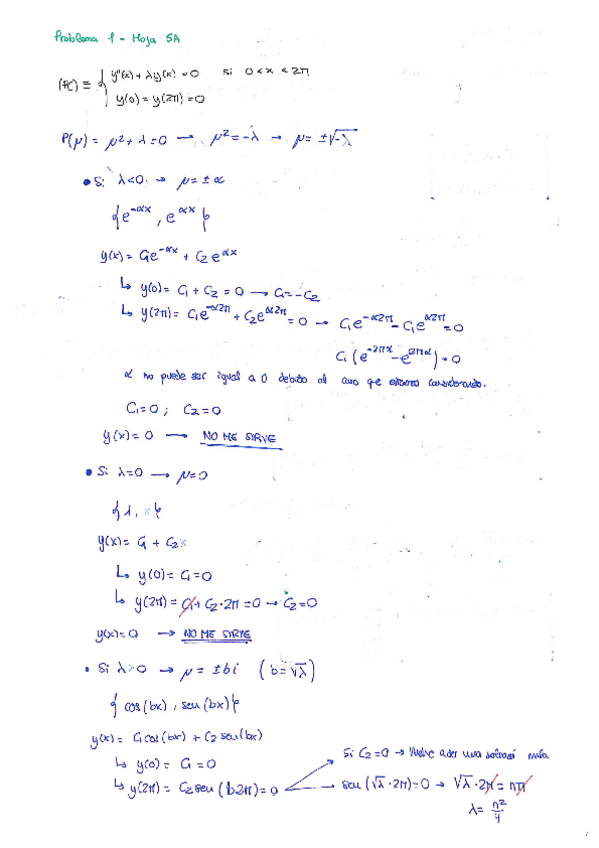 Problema 1 - Hoja 5A
(PC) ≡ { y''(x) + λy(x) = 0 si 0 < x < 2π
y(0) = y(2π) = 0
P(μ) = μ² + λ = 0 → μ² = -λ → μ = ±√-λ
• Si λ<0 → μ = ±α
{e^-αx, e^αx}
y(x) = C₁e^-αx + C₂e^αx
↳ y(0) = C₁ + C₂ = 0 → C₁ = -C₂
↳ y(2π) = C₁e^-α2π + C₂e^α2π = 0 → C₁e^-α2π - C₁e^α2π = 0
C₁(e^-2πα - e^2πα) = 0
α no puede ser igual a 0 debido al caso que estamos considerando.
C₁ = 0 ; C₂ = 0
y(x) = 0 → NO ME SIRVE
• Si λ=0 → μ=0
{1, x}
y(x) = C₁ + C₂x
↳ y(0) = C₁ = 0
↳ y(2π) = C₁ + C₂·2π = 0 → C₂ = 0
y(x) = 0 → NO ME SIRVE
• Si λ>0 → μ = ±bi (b = √λ)
{cos(bx), sen(bx)}
y(x) = C₁cos(bx) + C₂sen(bx)
Si C₂=0 → Vuelve a ser una solución nula
↳ y(0) = C₁ = 0
↳ y(2π) = C₂sen(b2π) = 0 → sen(√λ·2π) = 0 → √λ·2π = nπ
λ = n²/4